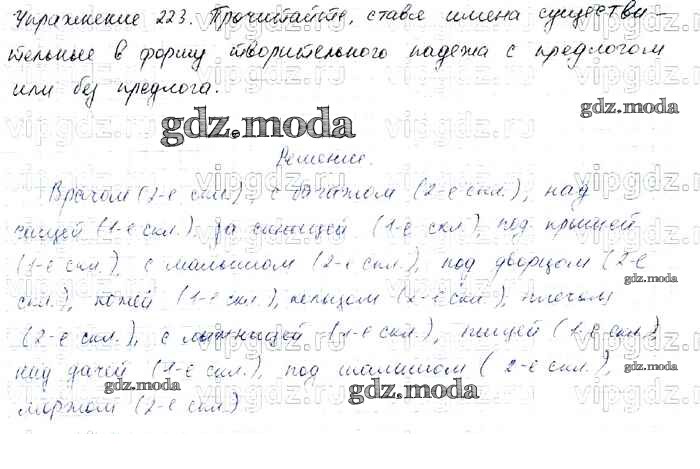 Упражнение 223. Прочитайте, ставя имена существи-
тельные в форму творительного падежа с предлогом
или без предлога.
gdz.moda
gdz.moda
Решение.
Врачом (2-е скл.), с багажом (2-е скл.), над
чащей (1-е скл.), за синицей (1-е скл.), под крышей
(1-е скл.), с малышом (2-е скл.), под дворцом (2-е
скл.), кожей (1-е скл.), кольцом (2-е скл.), плечом
gdz.moda
(2-е скл.), с (1-е скл.), пищей (1-е скл.),
над дачей (1-е скл.), под шалашом (2-е скл.),
gdz.moda
gdz.moda
gdz.moda
моржом (2-е скл.)